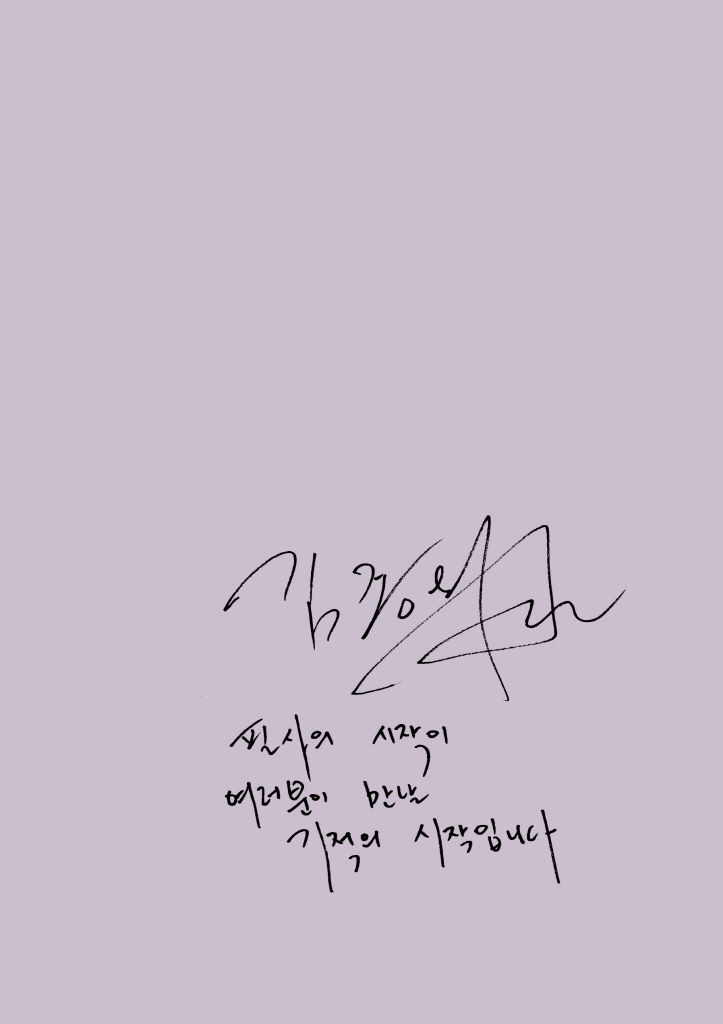 필사의 시작이
여러분이 만날
기적의 시작입니다